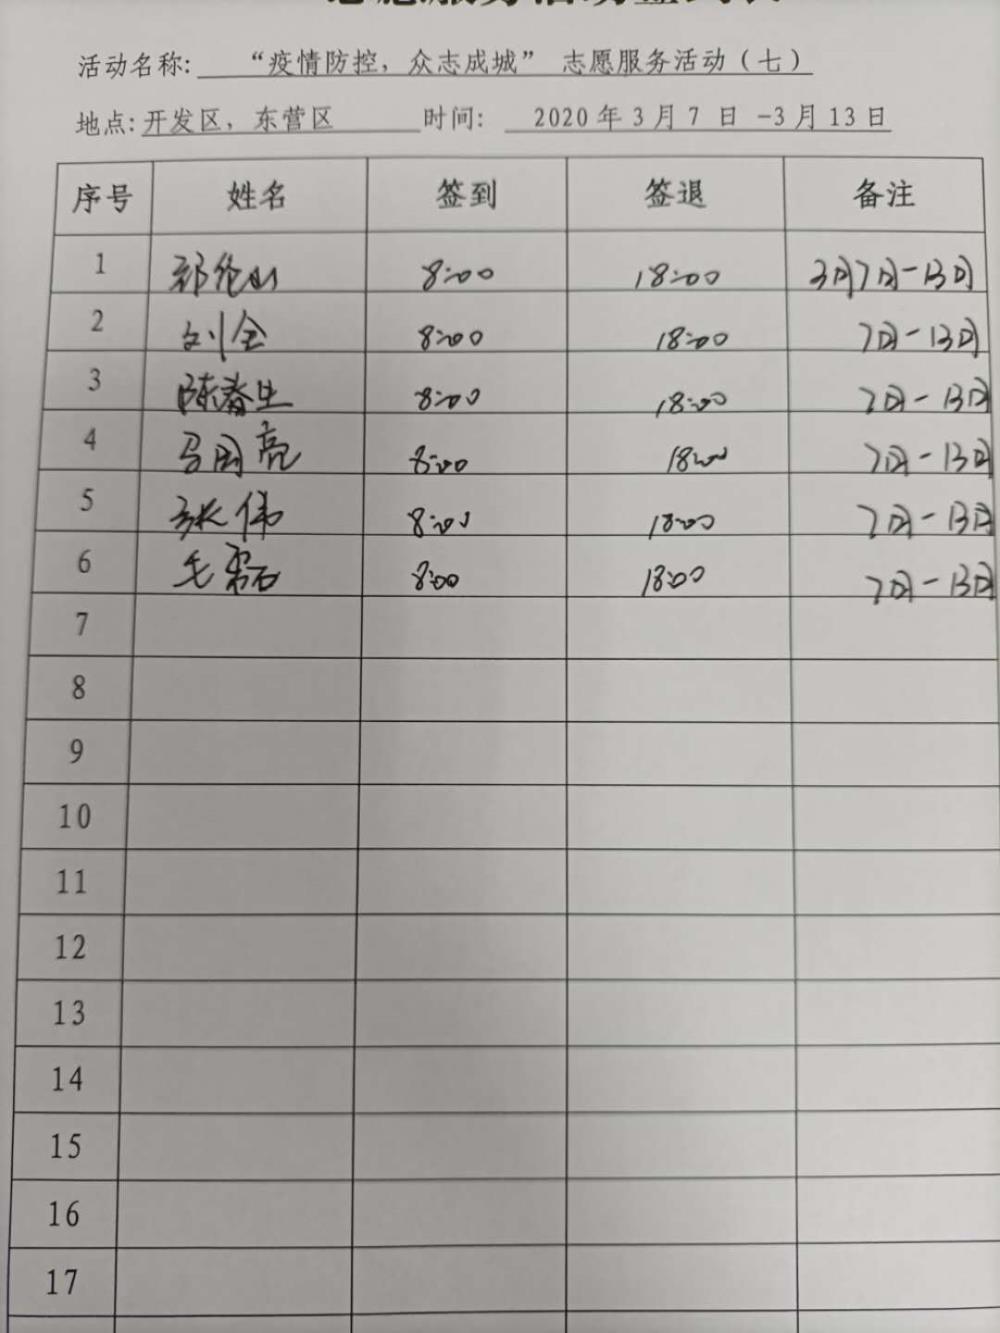 志愿服务活动签到表
活动名称: “疫情防控，众志成城” 志愿服务活动（七）
地点: 开发区，东营区 时间: 2020 年 3 月 7 日 -3 月 13 日
序号 姓名 签到 签退 备注
1 8:00 18:00 3月7日-13日
2 刘全 8:00 18:00 7日-13日
3 陈春生 8:00 18:00 7日-13日
4 马国亮 8:00 18:00 7日-13日
5 张伟 8:00 18:00 7日-13日
6 毛磊 8:00 18:00 7日-13日
7
8
9
10
11
12
13
14
15
16
17